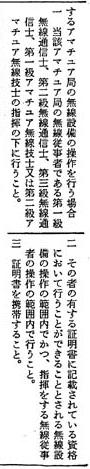 するアマチュア局の無線設備の操作を行う場合
一　当該アマチュア局の無線従事者である第一級
無線通信士、第二級無線通信士、第三級無線通
信士、第一級アマチュア無線技士又は第二級ア
マチュア無線技士の指揮の下に行うこと。
二　その者の有する証明書に記載されている資格
において行うことができることとされる無線設
備の操作の範囲内でかつ、指揮をする無線従事
者の操作の範囲内で行うこと。
三　証明書を携帯すること。